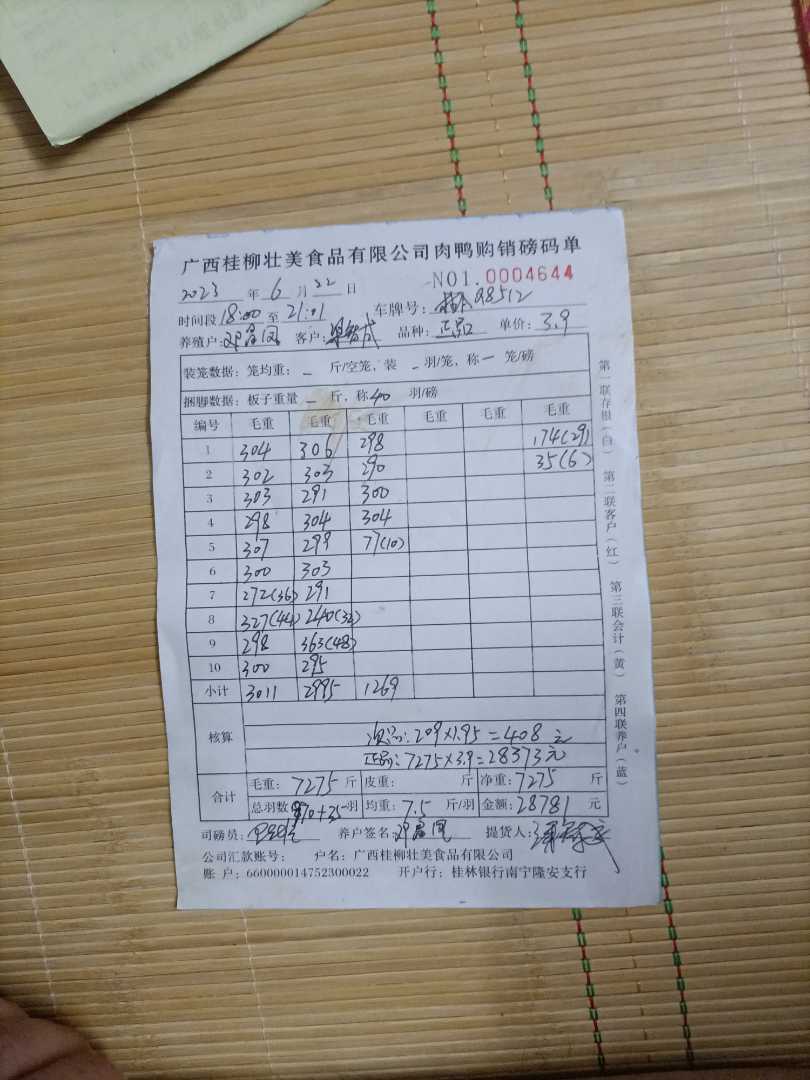 广西桂柳壮美食品有限公司肉鸭购销磅码单
2023 年 6 月 22 日 NO1.0004644
时间段 18:00 至 21:01 车牌号: 98512
养殖户: 客户: 品种: 正品 单价: 3.9
装笼数据: 笼均重: - 斤/空笼, 装 - 羽/笼, 称 - 笼/磅
捆脚数据: 板子重量 - 斤, 称 40 羽/磅
编号 毛重 毛重 毛重 毛重 毛重 毛重
1 304 306 298 174(29)
2 302 303 290 35(6)
3 303 291 300
4 298 304 304
5 307 299 77(10)
6 300 303
7 272(36) 291
8 327(44) 240(32)
9 298 363(48)
10 300 295
小计 3011 2995 1269
核算
次品: 209×1.95=408 元
正品: 7275×3.9=28373元
合计 毛重: 7275 斤 皮重: 斤 净重: 7275 斤
总羽数 970+35 羽 均重: 7.5 斤/羽 金额: 28781 元
司磅员: 养户签名: 提货人:
公司汇款账号: 户名: 广西桂柳壮美食品有限公司
账户: 660000014752300022 开户行: 桂林银行南宁隆安支行
第一联存根(白) 第二联客户(红) 第三联会计(黄) 第四联养户(蓝)